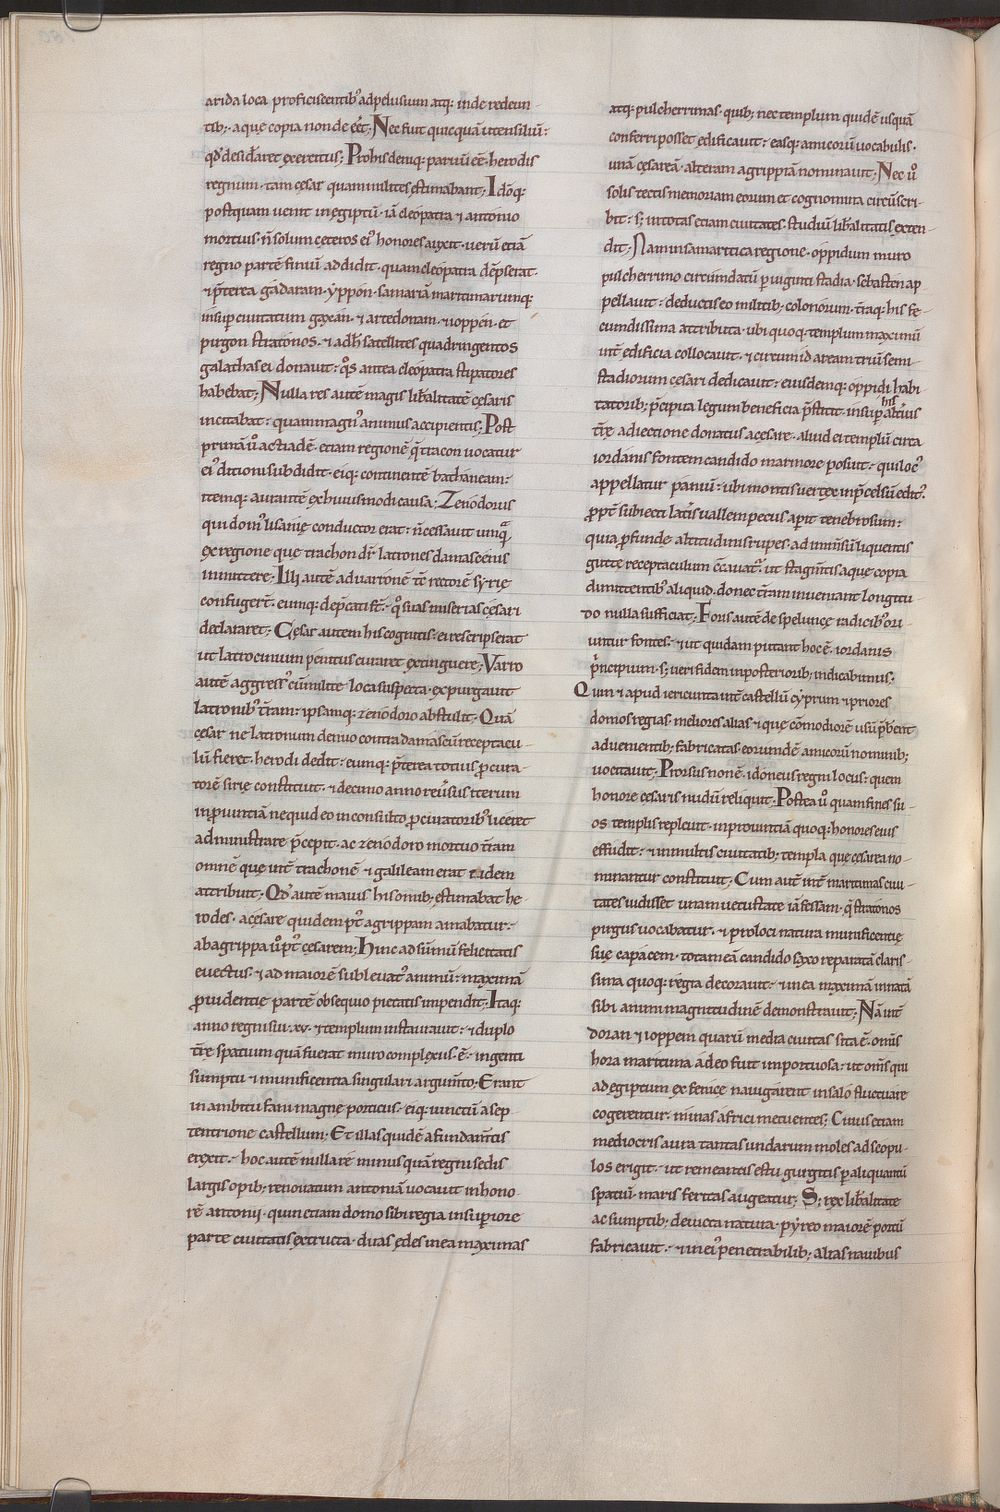 arida loca proficiscentib' ad pelusium atq: inde redeun-
tib;. aque copia non de eēt; Nec fuit quicquā utensiliū:
qđ desid'aret exercitus; Pro his deniq: paruū eē herodis
regnum. tam cęsar quam milites ęstimabant; Idōq:
postquam uenit in egiptū. iā cleopatra ⁊ antonio
mortuis. ñ solum ceteros ei' honores auxit. uerū etiā
regno partē finiū addidit. quam cleopatra dēpserat.
⁊ p̄terea gadaram. yppon. samariā maritimarumq:
insup ciuitatum gazan. ⁊ antedonam. ⁊ ioppen. et
pirgon stratonos. ⁊ adh' satellites quadringentos
galathas ei donauit: qºs antea cleopatra stipatores
habebat; Nulla res autē magis lib'alitatē cęsaris
incitabat: quam magn' animus accipientis; Post
primā ů actiadē. etiam regionē q̄ tracon uocatur
ei' ditioni subdidit. eiq: continentē bathaneam:
itemq: auranitē ex huiusmodi causa; Zenodorus
qui dom' lisanię conductor erat. ñ cessauit umqᵃ
ex regione quę trachon dr̄ latrones damascenis
inmittere; Illi autē ad uarronē tc̄ rectorē syrię
confugert̄. eumq: dep̄cati st̄. qº suas miserias cęsari
declararet; Cęsar autem his cognitis. ei rescripserat
ut latrocinium penitus curaret extinguere; Varro
autē aggress' cū milite loca suspecta. expurgauit
latronib' tr̄am: ipsamq: zenodoro abstulit. Quā
cęsar ne latronum denuo contra damascū receptacu-
lū fieret. herodi dedit: eumq: p̄terea totius procura-
torē sirię constituit. ⁊ decimo anno reuersus iterum
in prouintiā nequid eo inconsulto procuratorib' liceret
administrare p̄cepit. ac zenodoro mortuo tr̄am
omnē que int̄ trachonē ⁊ galileam erat eidem
attribuit. Qđ autē maius his omib; estimabat he
rodes. a cesare quidem pt̄ agrippam amabatur.
ab agrippa ů pt̄ cesarem; Hinc ad sūmū felicitatis
euectus. ⁊ ad maiorē subleuat' animū: maximā
prouidentię partē obsequio pietatis impendit; Itaq:
anno regni sui .xv. ⁊ templum instaurauit: ⁊ duplo
tr̄ę spatium quā fuerat muro complexus .ē. ingenti
sumptu ⁊ munificentia singulari argumto; Erant
in ambitu fani magnę porticus. eiq: iunctū a sep-
tentrione castellum; Et illas quidē a fundam̄tis
erexit.- hoc autē nulla rē minus quā regni sedis
largis opib; renouatum antoniā uocauit in hono-
rē antonii. quin etiam domo sibi regia in supiore
parte ciuitatis extructa. duas ędes in ea maximas
atq: pulcherrimas. quib; nec templum quidē usquā
conferri posset edificauit: easq: amicorū uocabulis.
unā cęsareā. alteram agrippiā nominauit; Nec ů
solis tectis memoriam eorum et cognomina circūscri-
bit: s; in totas etiam ciuitates. studiū lib'alitatis exten-
dit; Nam in samaritica regione. oppidum muro
pulcherrimo circūndatū p uiginti stadia. sebasten ap-
pellauit: deductis eo militib; colonorum. tr̄aq: his fe-
cundissima attributa. ubi quoq: templum maximū
int̄ edificia collocauit. ⁊ circum id aream triū semi-
stadiorum cęsari dedicauit: eiusdemq: oppidi habi-
tatorib; p̄cipua legum beneficia p̄stitit. insup his alt̄ius
tr̄ę adiectione donatus a cęsare. aliud ei templū circa
iordanis fontem candido marmore posuit. qui loc'
appellatur panium: ubi montis uertex in p̄celsū edit'.
ppt̄ subiecti lat̄is uallem pecus aperit tenebrosum:
quia pfunde altitudinis rupes. ad imm̄sū liquentis
guttę receptaculum cauatᷣ. ut stagn̄tis aque copia
dimittentib' aliquid. donec tr̄am inueniant longitu-
do nulla sufficiat; Foris autē de speluncę radicib' ori-
untur fontes. ⁊ ut quidam putant hoc ē. iordanis
p̄ncipium. s; ueri fidem in posteriorib; indicabimus.
Qum ⁊ apud iericunta int̄ castellū cyprum ⁊ priores
domos regias. meliores alias ⁊ que cōmodiorē usū p̄bent
aduenientib; fabricatas. eorundē amicorū nominib;
uocitauit; Prorsus non ē. idoneus regni locus: quem
honore cęsaris nudū reliquit; Postea ů quam fines su-
os templis repleuit. in prouintiā quoq: honores eius
effudit: ⁊ in multis ciuitatib; templa. que cesarea no-
minantur constituit; Cum aut̄ int̄ maritimas ciui-
tates uidisset unam uetustate iā fessam. q̄ stratonos
pirgus uocabatur. ⁊ pro loci natura munificentię
suę capacem. totam eā candido saxo reparatā claris-
sima quoq: regia decorauit: ⁊ in ea maximā innatā
sibi animi magnitudinē demonstrauit; Nā int̄
doran ⁊ ioppem quarū media ciuitas sita ē. oms̄
hora maritima adeo fuit importuosa: ut oms̄ qui
ad egiptum ex fenice nauigarent in salo fluctuare
cogerentur. minas africi metuentes; Cuius etiam
mediocris aura tantas undarum moles ad scopu-
los erigit. ut remeantes ęstu gurgitis p aliquantū
spatiū. maris feritas augeatur; S; rex lib'alitate
ac sumptib; deuicta natura. pyreo maiorē portū
fabricauit. ⁊ in ei' penetrabilib; alias nauibus